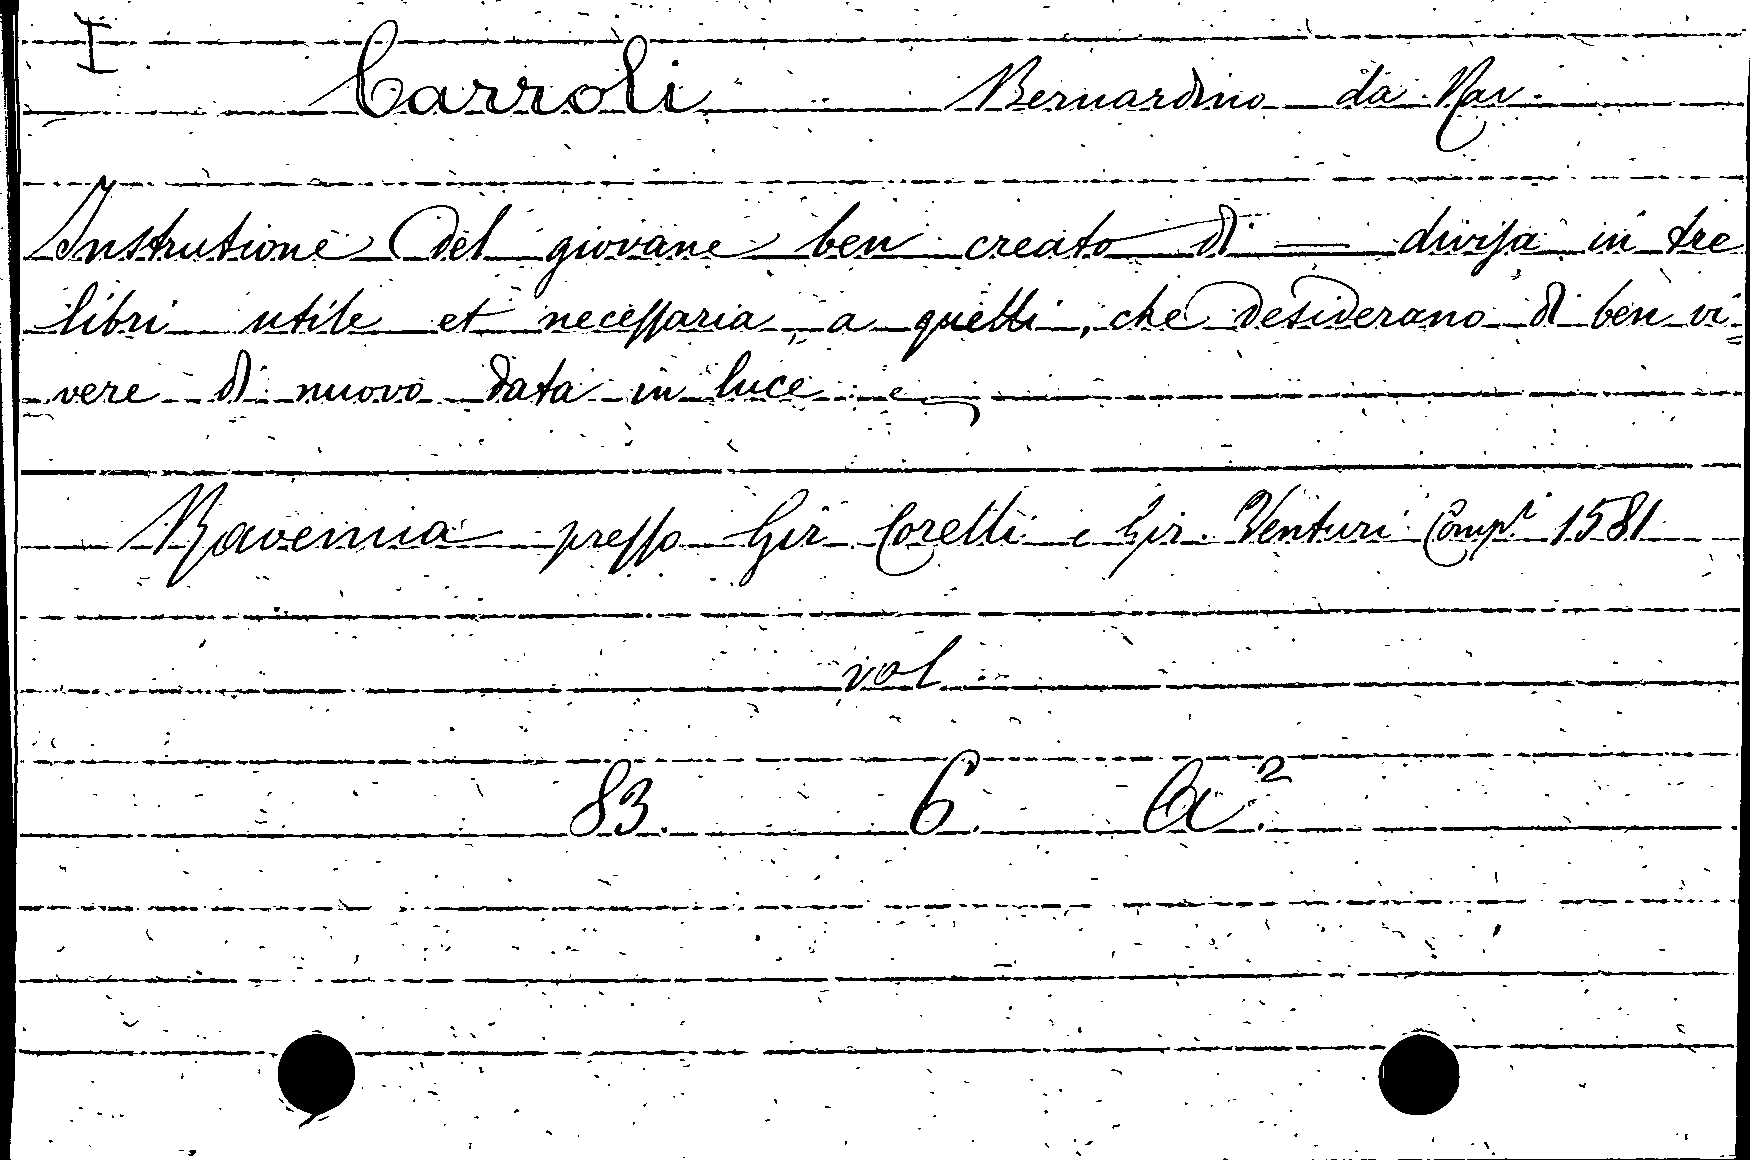 I
Carroli Bernardino da Rav.
Instrutione del giovane ben creato di — divisa in tre
libri utile et necessaria, a quelli, che desiderano di ben vi=
vere di nuovo data in luce e
Ravenna presso Gir Coretti e Gir. Venturi Comp.i 1581
vol
83. 6. Ca 2.